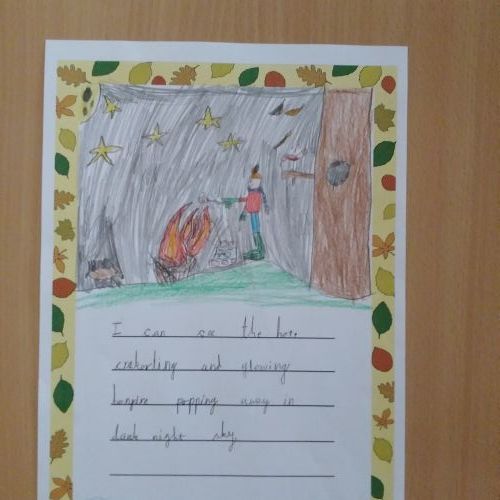 I can see the hot
crakorling and glowing
bonfire popping away in
dark night sky